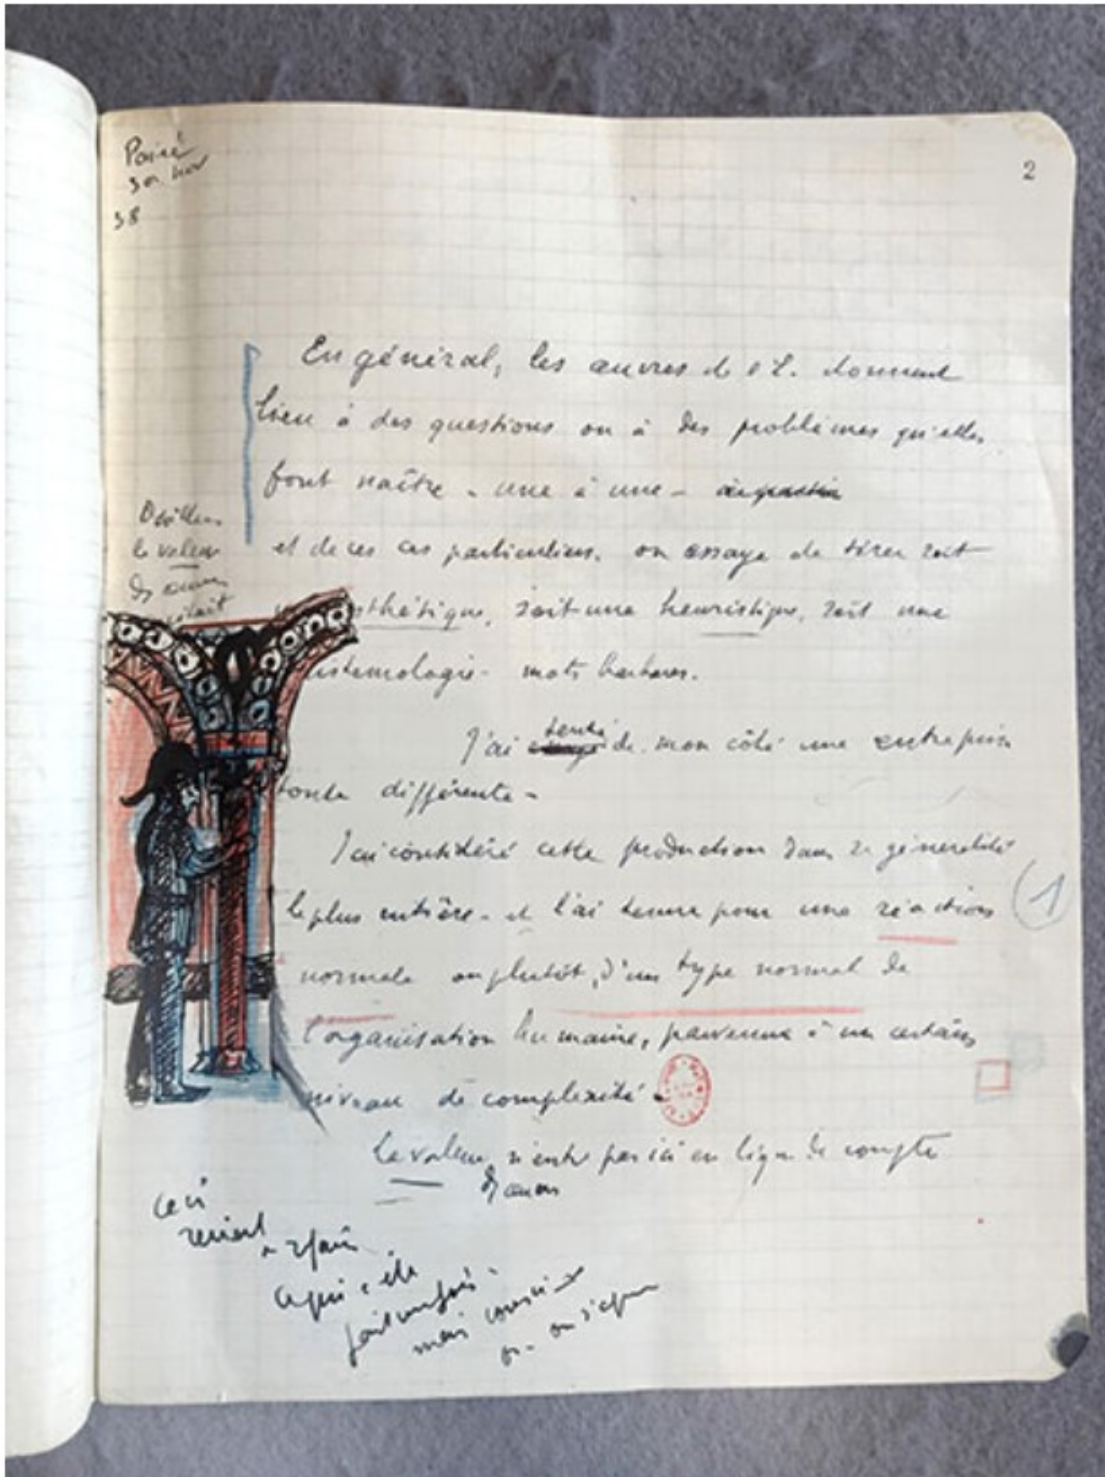 2
38
En général, les œuvres de l'E. donnent
lieu à des questions ou à des problèmes qu'elles
font naître - une à une -
et de ces cas particuliers, on essaye de tirer soit
esthétique, soit une heuristique, soit une
istemologie - mots barbares.
J'ai tenté de mon côté une entreprise
toute différente -
J'ai considéré cette production dans sa généralité
la plus entière - et l'ai tenue pour une réaction
(1)
normale ou plutôt, d'un type normal de
l'organisation humaine, parvenue à un certain
niveau de complexité -
La valeur n'entre pas ici en ligne de compte
D'ailleurs
la valeur
des œuvres
était
ceci
revient
à refaire
ce qui a été
fait
mais
on